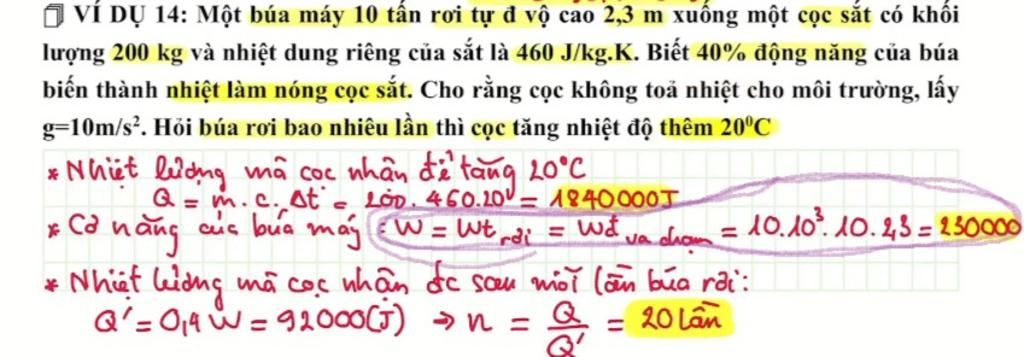 VÍ DỤ 14: Một búa máy 10 tấn rơi tự đ vộ cao 2,3 m xuống một cọc sắt có khối
lượng 200 kg và nhiệt dung riêng của sắt là 460 J/kg.K. Biết 40% động năng của búa
biến thành nhiệt làm nóng cọc sắt. Cho rằng cọc không toả nhiệt cho môi trường, lấy
g=10m/s². Hỏi búa rơi bao nhiêu lần thì cọc tăng nhiệt độ thêm 20⁰C
* Nhiệt lượng mà cọc nhận để tăng 20°C
Q = m.c.Δt = 200.460.20 = 1840000J
* Cơ năng của búa máy : W = Wt rơi = Wđ va chạm = 10.10³.10.2,3 = 230000
* Nhiệt lượng mà cọc nhận đc sau mỗi lần búa rơi:
Q' = 0,4W = 92000(J) → n = Q/Q' = 20 lần